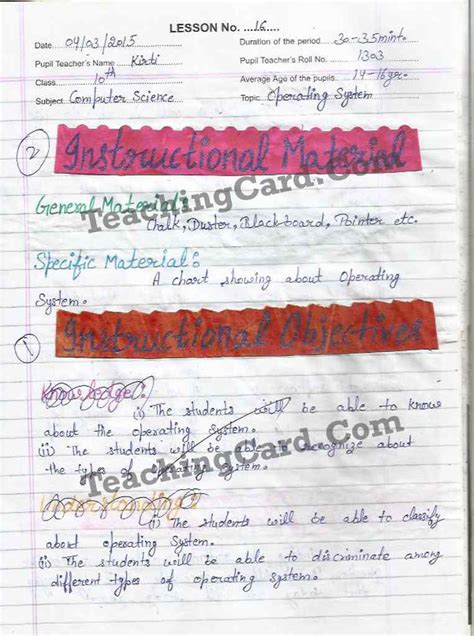 LESSON No. ...16....
Date 04/03/2015 Duration of the period 30-35mint.
Pupil Teacher's Name Kirti Pupil Teacher's Roll No. 1303
Class 10th Average Age of the pupils. 14-16yr.
Subject Computer Science Topic Operating System
② Instructional Material
General Material:
Chalk, Duster, Blackboard, Pointer etc.
TeachingCard.Com
Specific Material:
A chart, showing about Operating
System.
① Instructional Objectives
Knowledge:
(i) The students will be able to know
about the operating system.
(ii) The students will be able recognize about
the types of operating system.
TeachingCard.Com
Understanding:
(i) The students will be able to classify
about operating System.
(ii) The students will be able to discriminate among
different types of operating system.